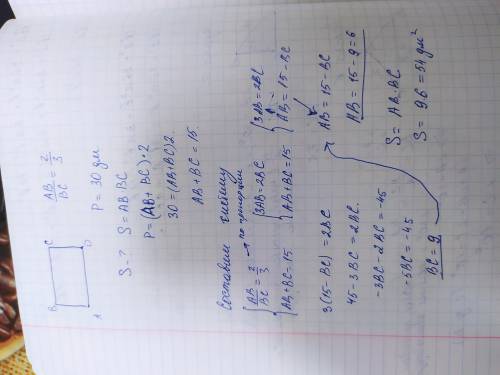 B C
A D
AB/BC = 2/3
P = 30 дм
S - ? S = AB·BC
P = (AB + BC)·2
30 = (AB+BC)2
AB + BC = 15.
Составим систему
{AB/BC = 2/3 → по пропорции {3AB = 2BC {3AB = 2BC
{AB + BC = 15 {AB + BC = 15 {AB = 15 - BC
3(15 - BC) = 2BC
45 - 3BC = 2BC.
-3BC - 2BC = -45
-5BC = -45
BC = 9
AB = 15 - BC
AB = 15 - 9 = 6
S = AB·BC
S = 9·6 = 54 дм²